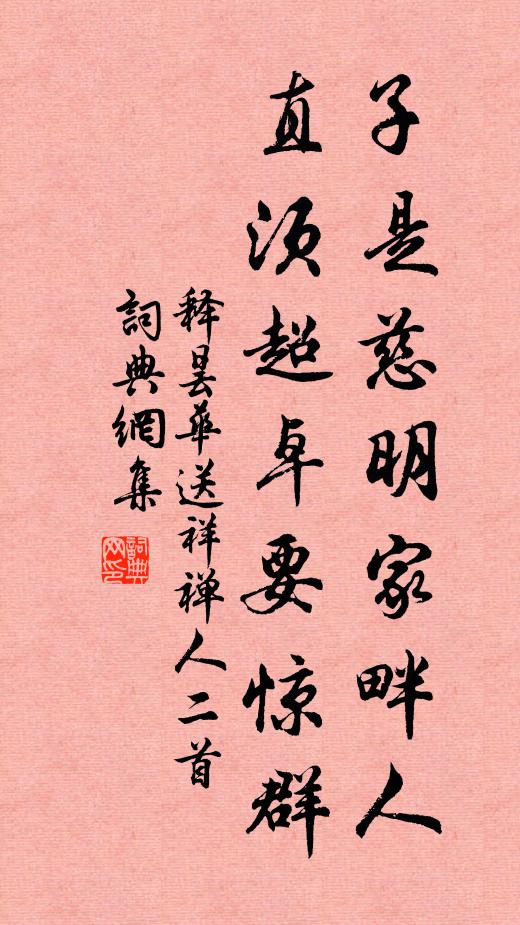 子是慈明家畔人
直须超卓要惊群
释昙华送祥禅人二首
詞典網集
詞典网印